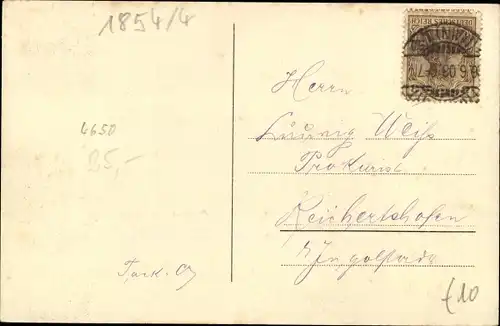 1854/4
DEUTSCHES REICH
Herrn
Ludwig Weiß
4650
Prokurist
25,-
Reichertshofen
b/Ingolstadt
€10